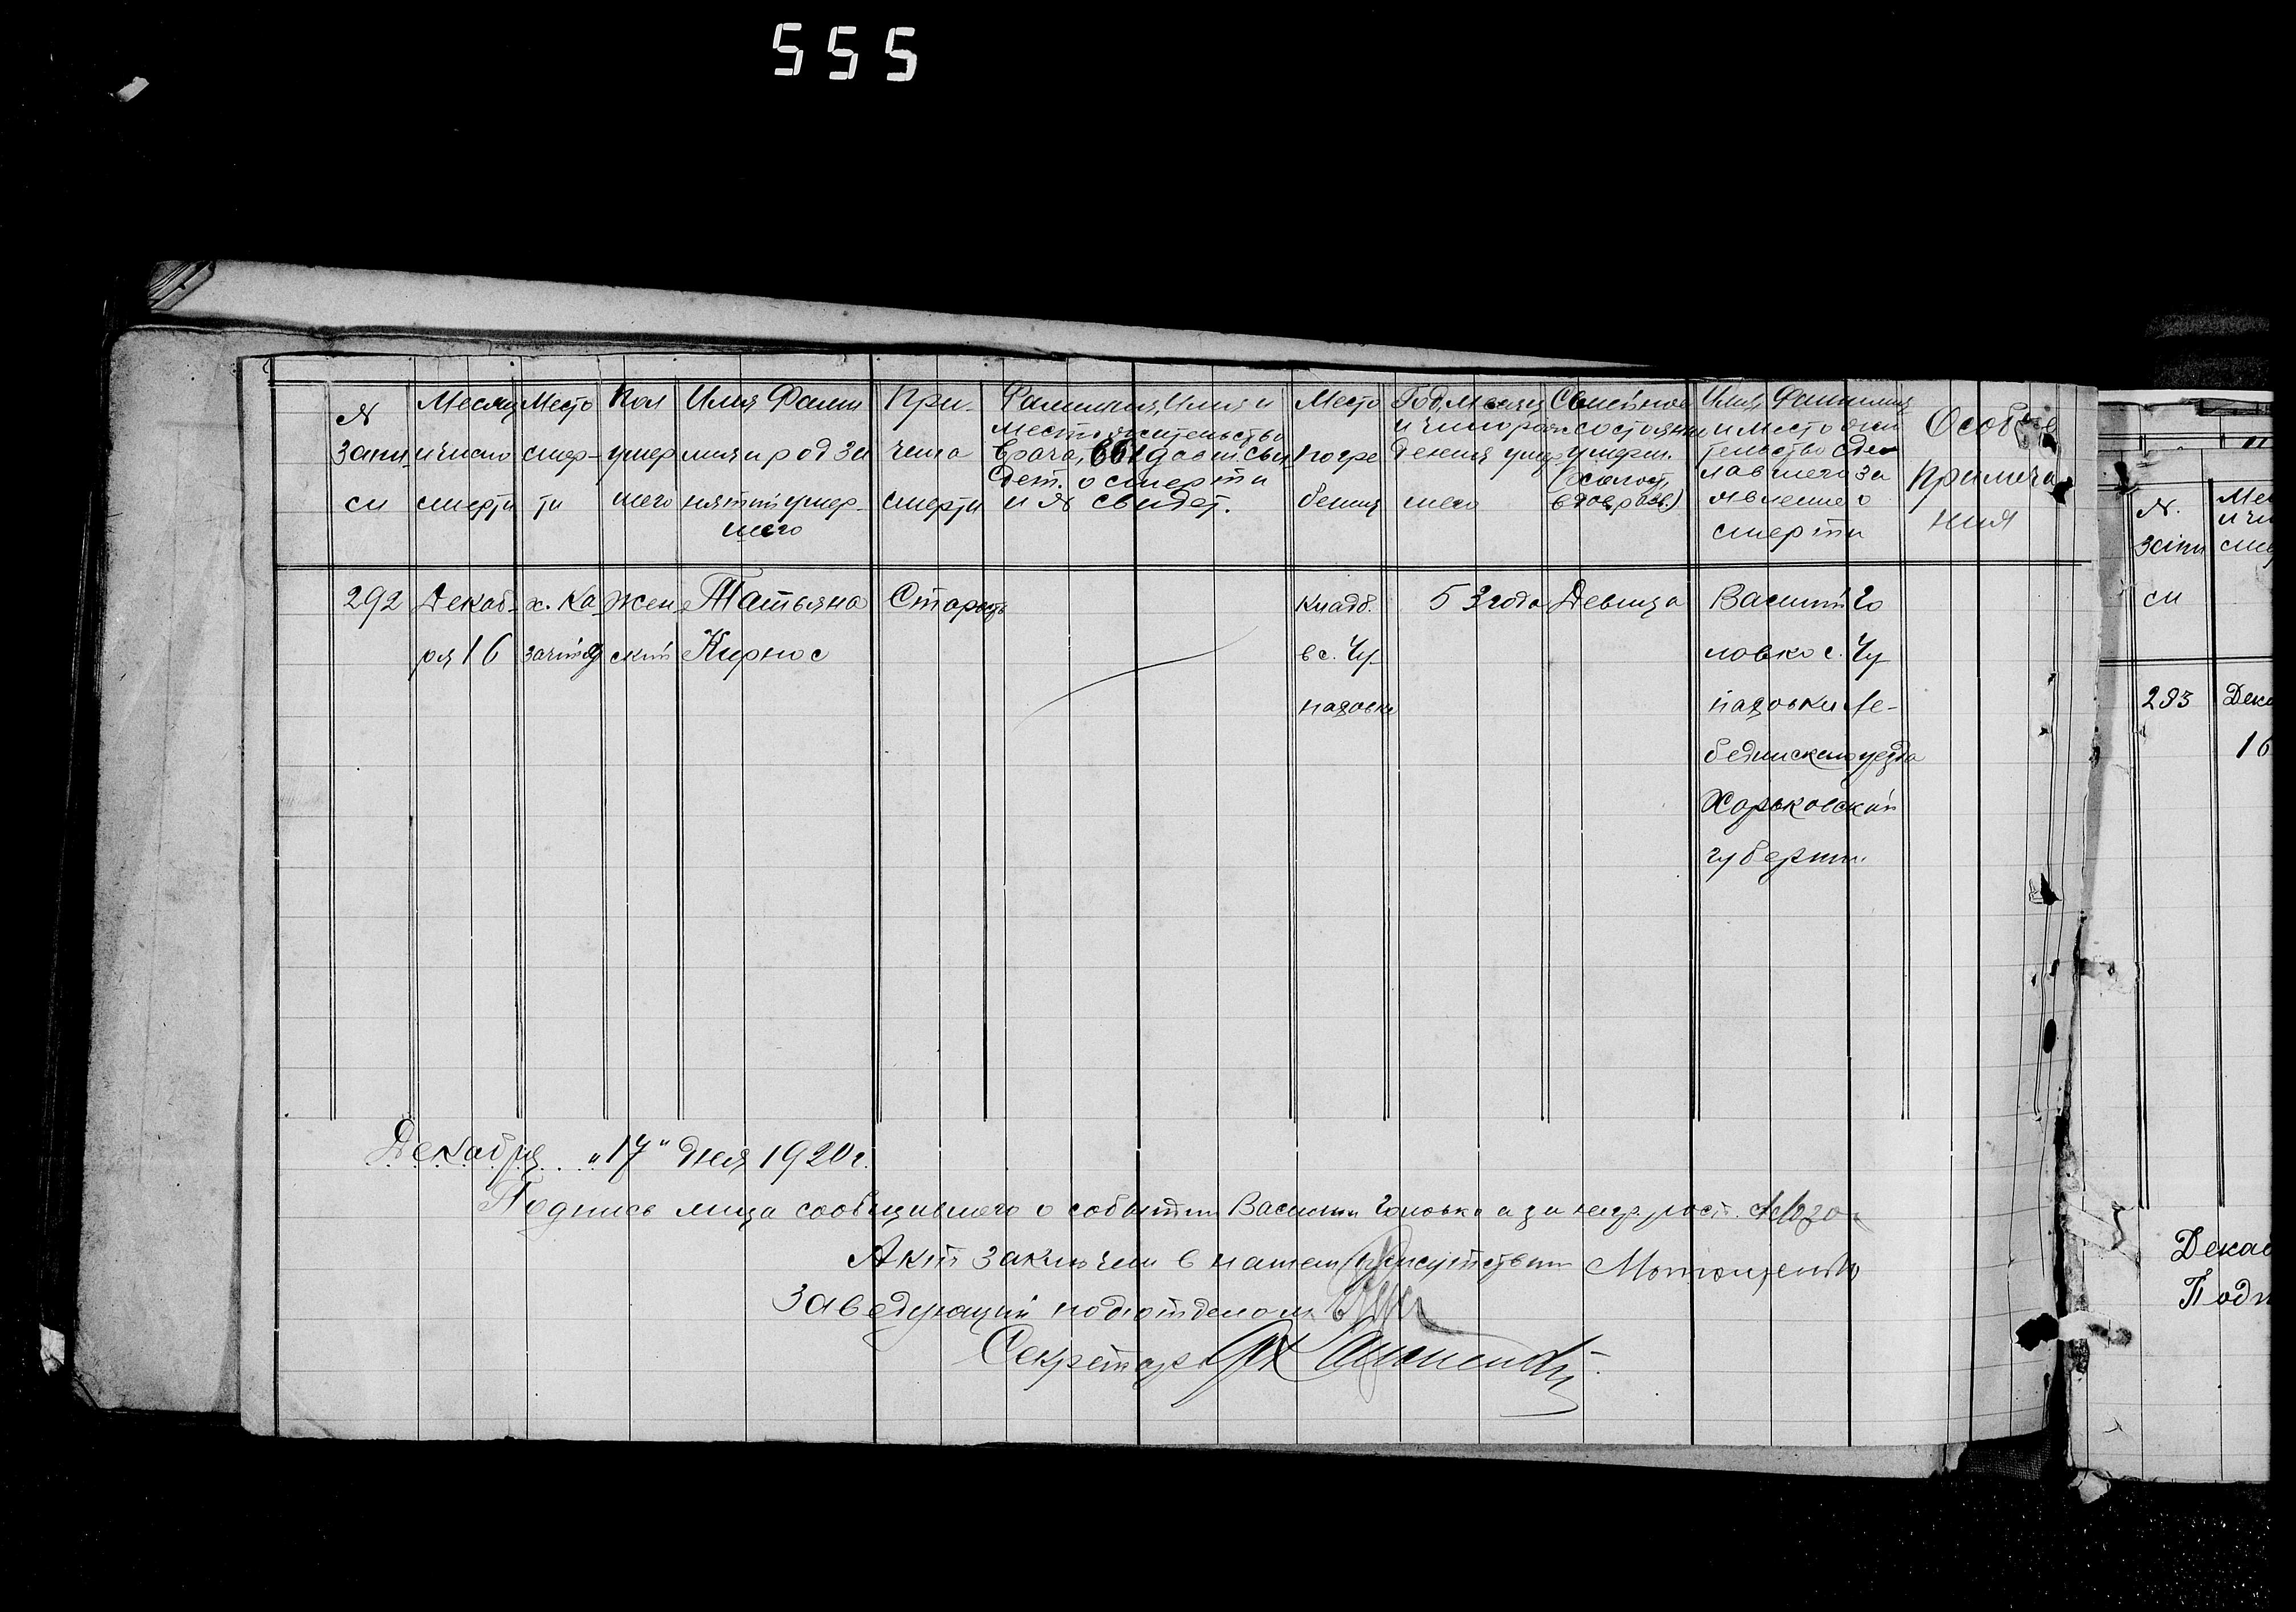 555
№ записи
Месяц и число смерти
Место смерти
Пол умершего
Имя Фамилия и род занятий умершего
Причина смерти
Фамилия, Имя и место жительство врача, выдавш. свидет. о смерти и № свидет.
Место погребения
Год, месяц и число рождения умершего
Семейное состояние умерш. (холост, вдов, разв.)
Имя, Фамилия и место жительство сделавшего заявление о смерти
Особые примечания
292 Декаб- х. Ка Жен Татьяна Старость Кладб. 53 года Девица Василий Го
ря 16 ский Кирнос в с. Чу ловко с. Чу
падовки падовки Ле-
бединского уезда
Харьковской
губернии
Декабря "17" дня 1920 г.
Подпись лица сообщившего о событии Василий Головко а за негр. росп.
Акт заключен в нашем присутствии
Заведующий подотделом
Секретарь
№.
запи
си
Мес
и чи
сме
293 Дека
16
Декаб
Подп